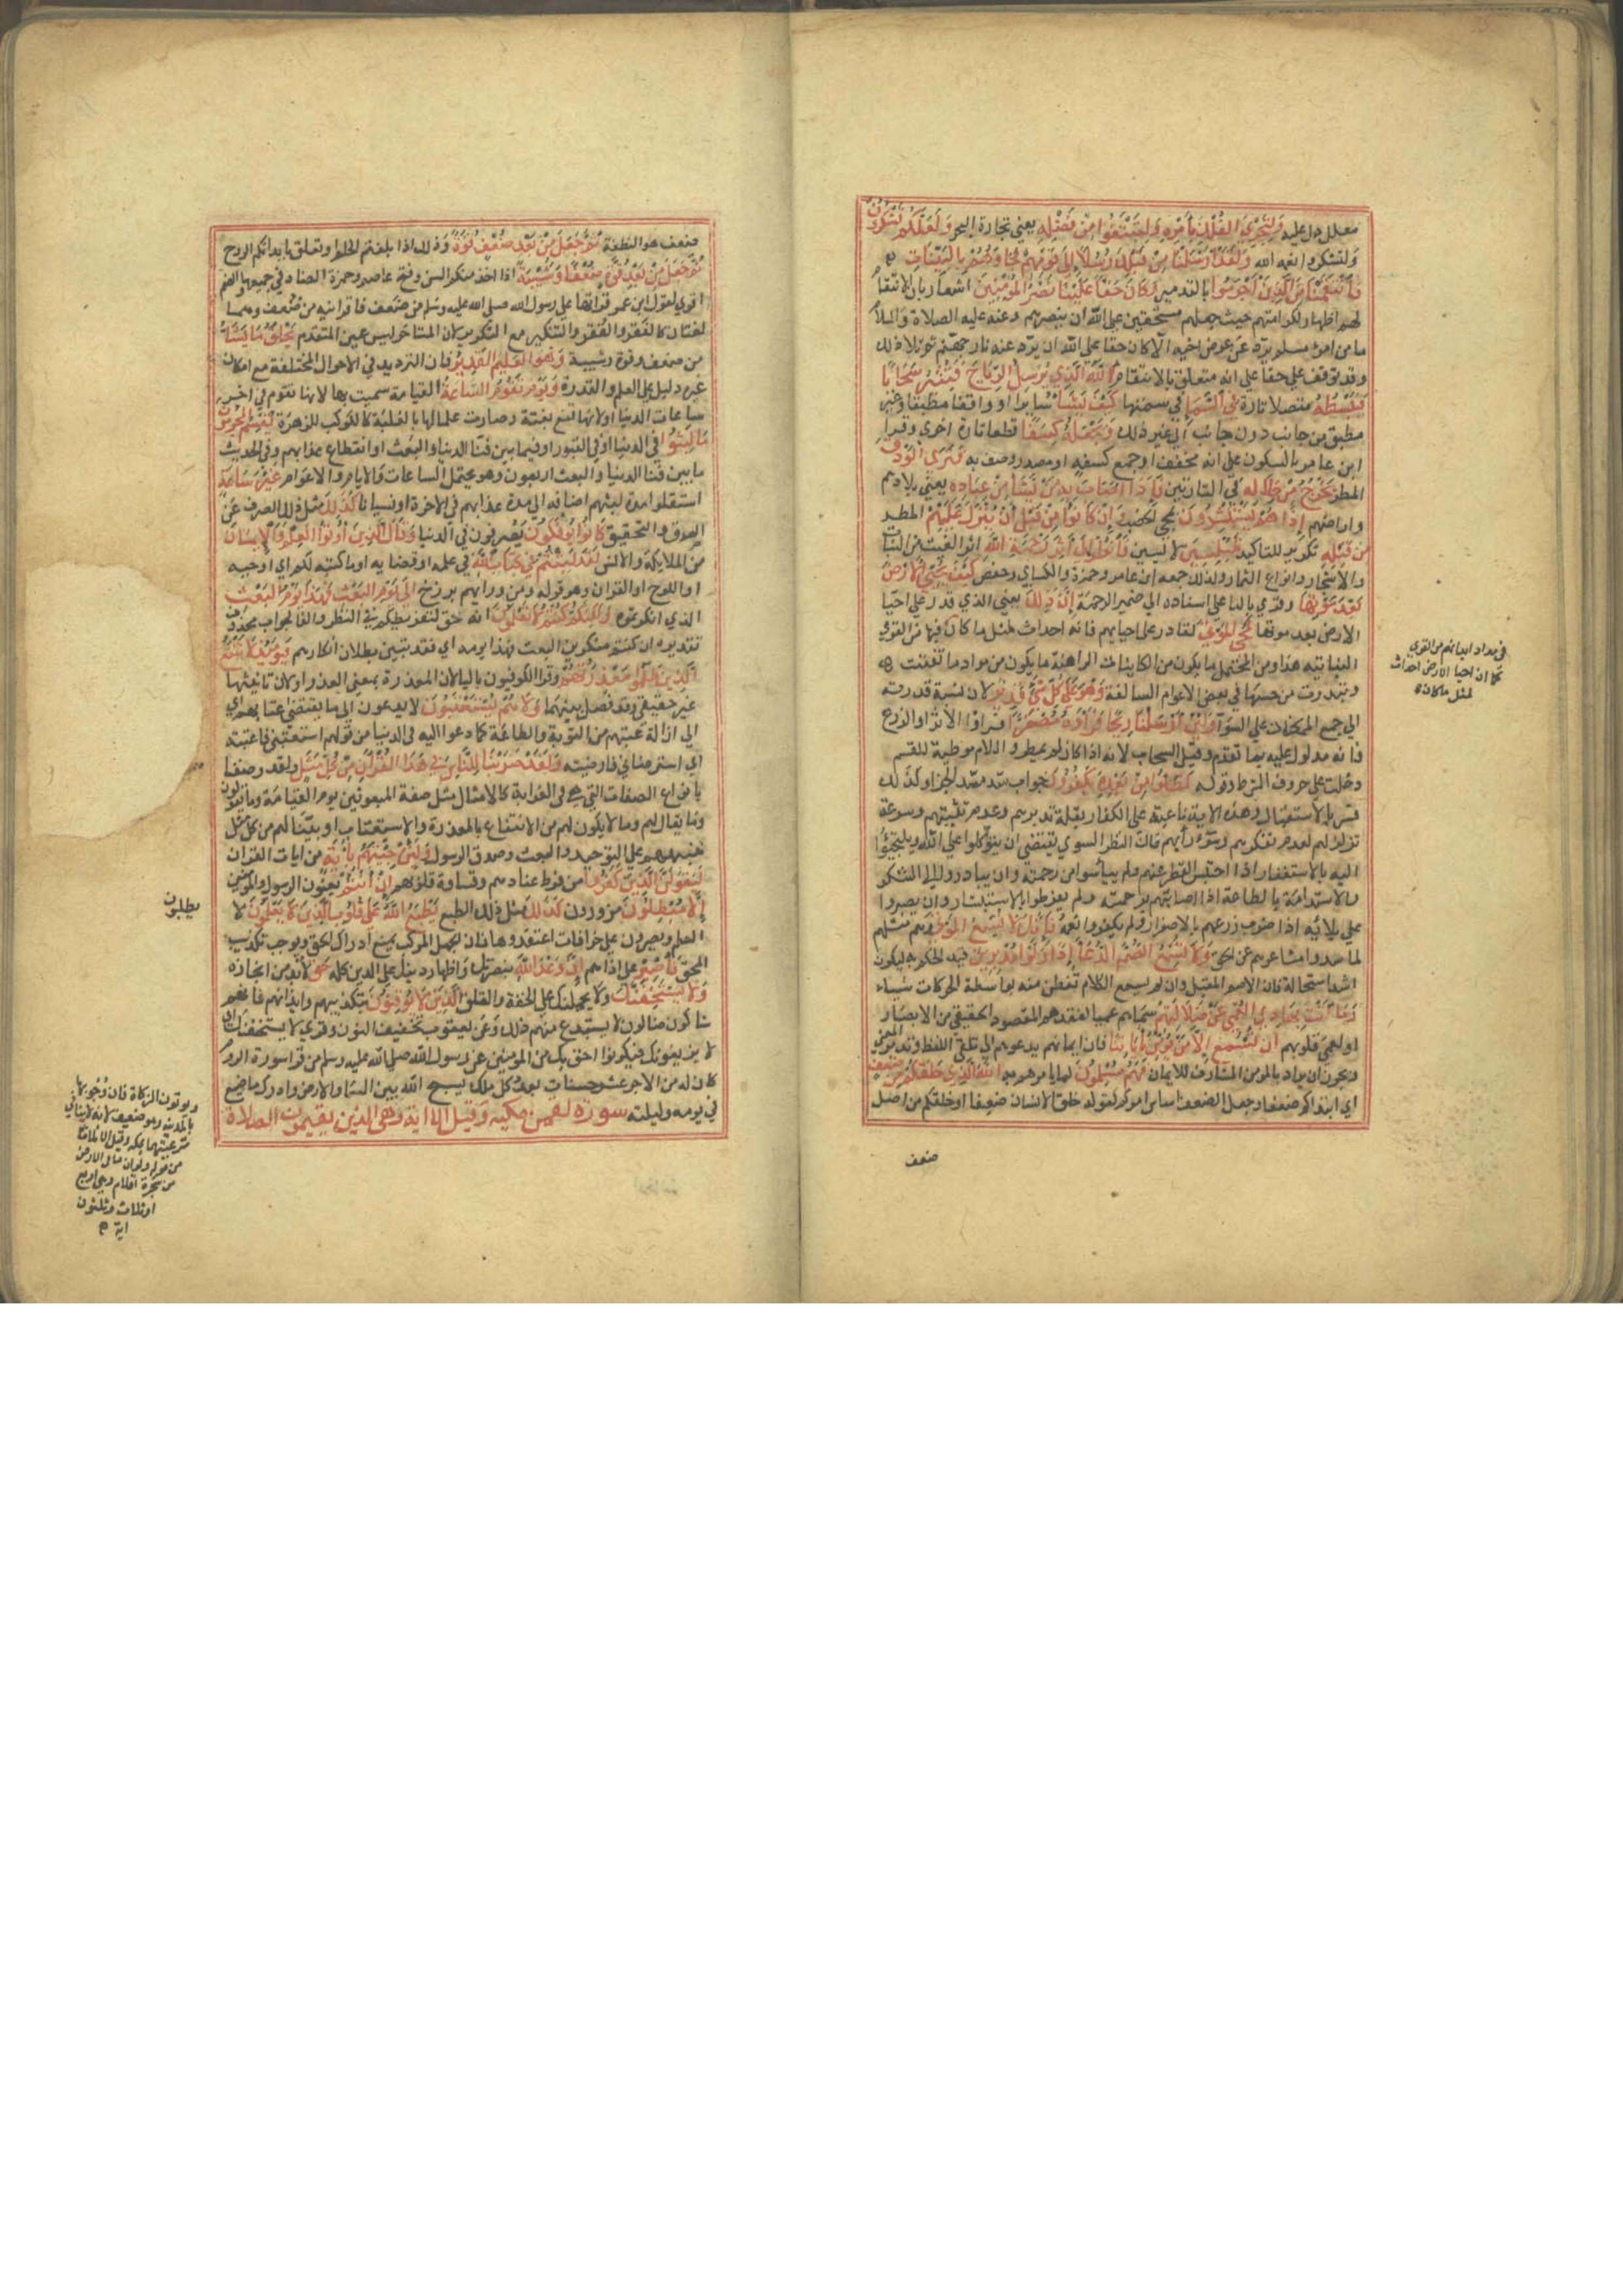 معلل دل عليه ولتجري الفلك بأمره ولتبتغوا من فضله يعني تجارة البحر ولعلكم تشكرون
ولتشكروا نعمه الله ولقد أرسلنا من قبلك رسلا إلى قومهم فجاؤهم بالبينات
فانتقمنا من الذين أجرموا بالتدمير وكان حقا علينا نصر المؤمنين اشعار بان الانتقام
لهم اظهار لكرامتهم حيث جعلهم مستحقين على الله ان ينصرهم وعنه عليه الصلاة والسلام
ما من امرئ مسلم يرد عن عرض اخيه الا كان حقا على الله ان يرد عنه نار جهنم ثم تلا ذلك
وقد توقف على حقا على انه متعلق بالانتقام الله الذي يرسل الرياح فتثير سحابا
فيبسطه متصلا تارة في السماء في سمتها كيف يشاء سائرا او واقفا مطبقا وغير
مطبق من جانب دون جانب الى غير ذلك ويجعله كسفا قطعا تارة اخرى وقرا
ابن عامر بالسكون على انه مخفف او جمع كسفه او مصدر وصف به فترى الودق
المطر يخرج من خلاله في التارتين فإذا أصاب به من يشاء من عباده يعني بلادهم
واراضيهم إذا هم يستبشرون بمجئ الخصب وإن كانوا من قبل أن ينزل عليهم المطر
من قبله تكرير للتاكيد لمبلسين لايسين فانظر إلى أثر رحمة الله اثر الغيث من النبات
والاشجار وانواع الثمار ولذلك جمعه ابن عامر وحمزة والكساي وحفص كيف يحيي الأرض
بعد موتها وقرئ بالتا على اسناده الى ضمير الرحمة إن ذلك يعني الذي قدر على احيا
الارض بعد موتها لمحي الموتى لقادر على احيايهم فانه احداث لمثل ما كان فيها من القوى
النباتيه هذا ومن المحتمل ما يكون من الكاينات الراهنة ما يكون من مواد ما تفتتت
وتبددت من جنسها في بعض الاعوام السالفة وهو على كل شئ قدير لان نسبة قدرته
الى جميع الممكنات على السوا ولئن أرسلنا ريحا فرأوه مصفرا فراوا الاثر او الزرع
فانه مدلول عليه بما تقدم وقيل السحاب لانه اذا كان مصفرا لم يمطر واللام موطية للقسم
دخلت على حروف الشرط وقوله لظلوا من بعده يكفرون جواب سد مسد الجزا ولذلك
فسر بالاستقبال وهذه الايه ناعية على الكفار بقلة تدبرهم وعدم تثبتهم وسرعة
تزلزلهم لعدم تفكرهم وسوء رأيهم فان النظر السوي يقتضي ان يتوكلوا على الله ويلتجئوا
اليه بالاستغفار اذا احتبس القطر عنهم ولم ييأسوا من رحمته وان يبادروا الى الشكر
والاستدامة بالطاعة اذا اصابهم برحمته ولم يفرطوا بالاستبشار وان يصبروا
على بلائه اذا ضرب زرعهم بالاصفرار ولم يكفروا نعمه فإنك لا تسمع الموتى وهم مثلهم
لما سدوا مشاعرهم عن الحق ولا تسمع الصم الدعاء إذا ولوا مدبرين قيد الحكم به ليكون
اشد استحالة فان الاصم المقبل وان لم يسمع الكلام تفطن منه بواسطة الحركات شيا
وما أنت بهادي العمي عن ضلالتهم سماهم عميا لفقدهم المقصود الحقيقي من الابصار
او لعمى قلوبهم ان تسمع إلا من يؤمن بآياتنا فان ايمانهم يدعوهم الى تلقي اللفظ وتدبر المعنى
ويجوز ان يراد بالمومن المشارف للايمان فهم مسلمون لما يامرهم به الله الذي خلقكم من ضعف
اي ابتداكم ضعفا وجعل الضعف اساس امركم كقوله خلق الانسان ضعيفا او خلقكم من اصل
ضعف
في مواد ابدانهم من القوى
كما ان احيا الارض احداث
لمثل ما كان
ضعف هو النطفة ثم جعل من بعد ضعف قوة وذلك اذا بلغتم الحلم او تعلق بابدانكم الروح
ثم جعل من بعد قوة ضعفا وشيبة اذا اخذ منكم السن وفتح عاصم وحمزة الضاد في جميعها والضم
اقوى لقول ابن عمر قراتها على رسول الله صلى الله عليه وسلم من ضعف فاقرانيه من ضعف وهما
لغتان كالفقر والفقر والتنكير مع التكرير لان المتاخر ليس عين المتقدم يخلق ما يشاء
من ضعف وقوة وشيبة وهو العليم القدير فان الترديد في الاحوال المختلفة مع امكان
غيره دليل على العلم والقدرة ويوم تقوم الساعة القيامة سميت بها لانها تقوم في اخر
ساعات الدنيا او لانها تقع بغتة وصارت علما لها بالغلبة كالكوكب للزهرة يقسم المجرمون
ما لبثوا في الدنيا او في القبور او فيما بين فنا الدنيا والبعث او انقطاع عذابهم وفي الحديث
ما بين فنا الدنيا والبعث اربعون وهو محتمل الساعات والايام والاعوام غير ساعة
استقلوا مدة لبثهم اضافه الى مدة عذابهم في الاخرة او نسيانا كذلك مثل ذلك الصرف عن
الصدق والتحقيق كانوا يؤفكون يصرفون في الدنيا وقال الذين أوتوا العلم والإيمان
من الملايكة والانس لقد لبثتم في كتاب الله في علمه او قضايه او ما كتبه لكم اي اوجبه
او اللوح او القران وهو قوله ومن ورايهم برزخ إلى يوم البعث فهذا يوم البعث
الذي انكرتموه ولكنكم كنتم لا تعلمون انه حق لتفريطكم في النظر والفا لجواب محذوف
تقديره ان كنتم منكرين البعث فهذا يومه اي فقد تبين بطلان انكاركم فيومئذ لا تنفع
الذين ظلموا معذرتهم وقرا الكوفيون باليا لان المعذرة بمعنى العذر او لان تانيثها
غير حقيقي وقد فصل بينهما ولا هم يستعتبون لا يدعون الى ما يقتضي عتابهم اي
الى ازالة عتبهم من التوبة والطاعة كما دعوا اليه في الدنيا من قولهم استعتبني فاعتبته
اي استرضاني فارضيته ولقد ضربنا للناس في هذا القرآن من كل مثل ولقد وصفنا
بانواع الصفات التي هي في الغرابة كالامثال مثل صفة المبعوثين يوم القيامة وما يقولون
وما يقال لهم وما لا يكون لهم من الانتفاع بالمعذرة والاستعتاب او بينا لهم من كل مثل
ينبههم على التوحيد والبعث وصدق الرسول ولئن جئتهم بآية من ايات القران
ليقولن الذين كفروا من فرط عنادهم وقساوة قلوبهم إن أنتم يعنون الرسول والمومنين
إلا مبطلون مزورون كذلك مثل ذلك الطبع يطبع الله على قلوب الذين لا يعلمون لا
العلم ويصرون على خرافات اعتقدوها فان الجهل المركب يمنع ادراك الحق ويوجب تكذيب
المحق فاصبر على اذاهم إن وعد الله بنصرتك واظهار دينك على الدين كله حق لا بد من انجازه
ولا يستخفنك ولا يحملنك على الخفة والقلق الذين لا يوقنون بتكذيبهم وايذائهم فانهم
شاكون ضالون لا يستبدع منهم ذلك وعن يعقوب بتخفيف النون وقرئ لا يستحقنك اي
لا يزيغونك فيكونوا احق بك من المومنين عن رسول الله صلى الله عليه وسلم من قرا سورة الروم
كان له من الاجر عشر حسنات بعدد كل ملك يسبح الله بين السما والارض وادرك ما ضيع
في يومه وليلته سورة لقمن مكيه وقيل الا اية وهي الذين يقيمون الصلاة
يطلبون
ويوتون الزكاة فان وجوبها
بالمدينة وهو ضعيف لانه لا ينافي
شرعيتها بمكه وقيل الا ثلاثا
من قوله ولو ان ما في الارض
من شجرة اقلام وهي اربع
او ثلاث وثلثون
اية